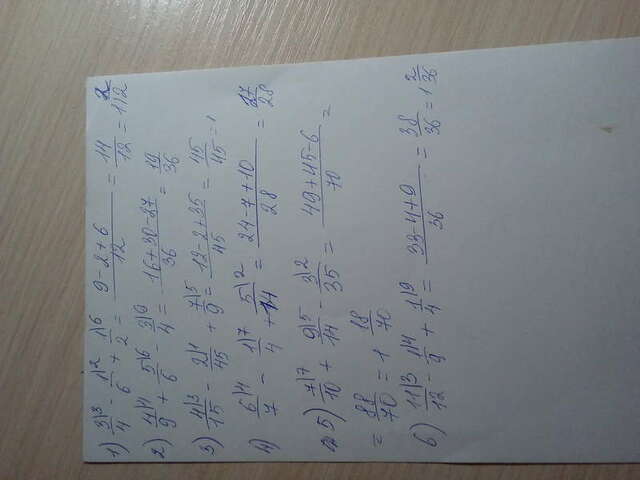 1) 3/4\3 - 1/6\2 + 1/2\6 = (9-2+6)/12 = 14/12 = 1 2/12
2) 4/9\4 + 5/6\6 - 3/4\9 = (16+30-27)/36 = 19/36
3) 4/15\3 - 2/45\1 + 7/9\5 = (12-2+35)/45 = 45/45 = 1
4) 6/7\4 - 1/4\7 + 5/14\2 = (24-7+10)/28 = 27/28
5) 7/10\7 + 9/14\5 - 3/35\2 = (49+45-6)/70 =
= 88/70 = 1 18/70
6) 11/12\3 - 1/9\4 + 1/4\9 = (33-4+9)/36 = 38/36 = 1 2/36